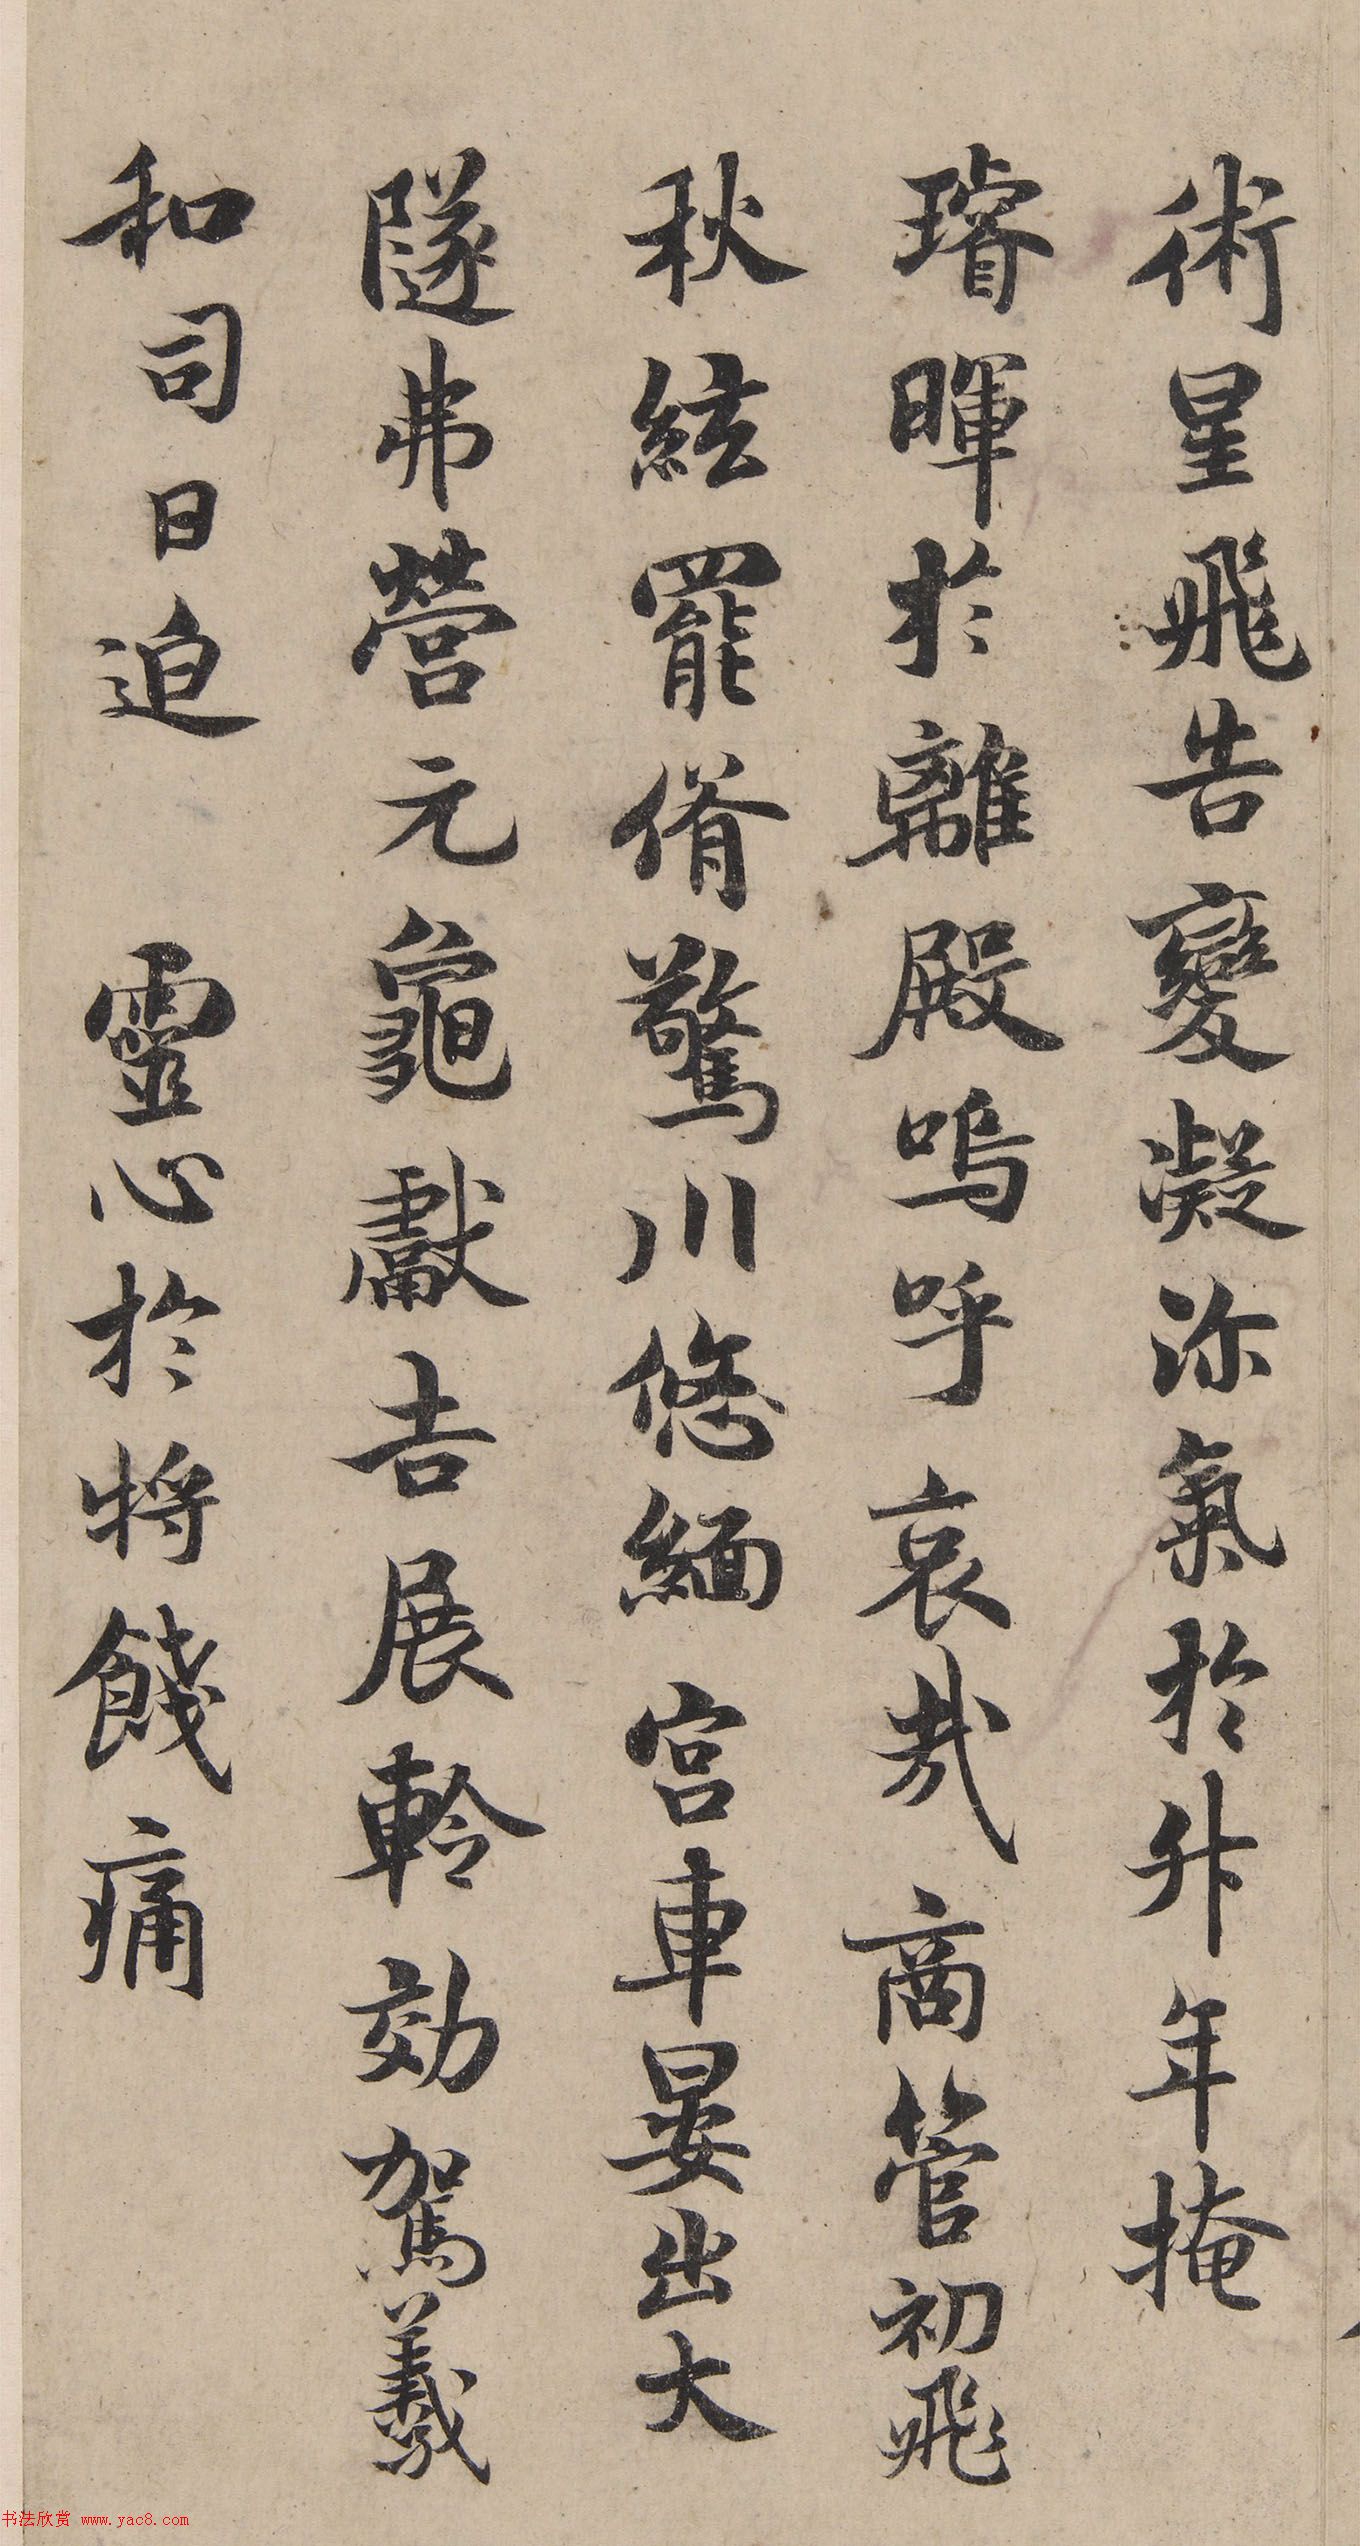 術星飛告變凝沴氣於升年掩
璿暉於離殿嗚呼哀哉商管初飛
秋絃罷偹驚川悠緬宮車晏出大
隧弗營元龜獻吉展軨効駕羲
和司日迫靈心於將餞痛
书法欣赏 www.yac8.com